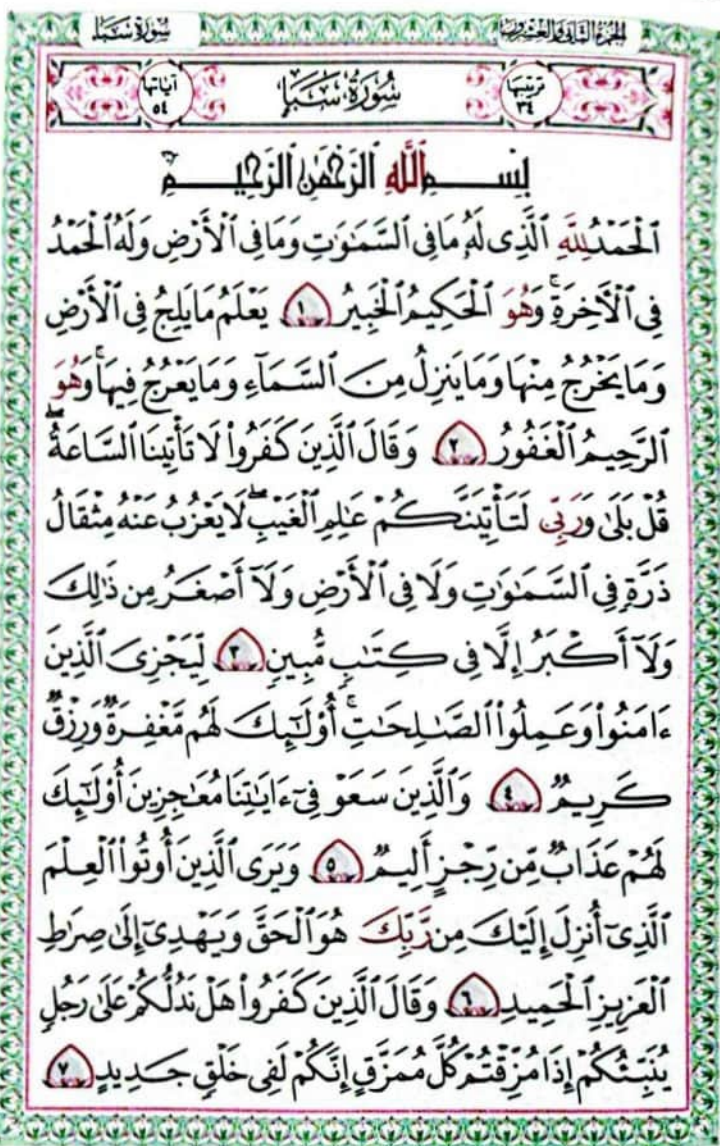 الجزء الثاني والعشرون سورة سبإ
ترتيبها ٣٤ سُورَةُ سَبَإٍ آياتها ٥٤
بِسْمِ ٱللَّهِ ٱلرَّحْمَٰنِ ٱلرَّحِيمِ
ٱلْحَمْدُ لِلَّهِ ٱلَّذِى لَهُۥ مَا فِى ٱلسَّمَٰوَٰتِ وَمَا فِى ٱلْأَرْضِ وَلَهُ ٱلْحَمْدُ
فِى ٱلْأَخِرَةِۚ وَهُوَ ٱلْحَكِيمُ ٱلْخَبِيرُ ١ يَعْلَمُ مَا يَلِجُ فِى ٱلْأَرْضِ
وَمَا يَخْرُجُ مِنْهَا وَمَا يَنزِلُ مِنَ ٱلسَّمَآءِ وَمَا يَعْرُجُ فِيهَاۚ وَهُوَ
ٱلرَّحِيمُ ٱلْغَفُورُ ٢ وَقَالَ ٱلَّذِينَ كَفَرُوا۟ لَا تَأْتِينَا ٱلسَّاعَةُۖ
قُلْ بَلَىٰ وَرَبِّى لَتَأْتِيَنَّكُمْ عَٰلِمِ ٱلْغَيْبِۖ لَا يَعْزُبُ عَنْهُ مِثْقَالُ
ذَرَّةٍ فِى ٱلسَّمَٰوَٰتِ وَلَا فِى ٱلْأَرْضِ وَلَآ أَصْغَرُ مِن ذَٰلِكَ
وَلَآ أَكْبَرُ إِلَّا فِى كِتَٰبٍ مُّبِينٍ ٣ لِّيَجْزِىَ ٱلَّذِينَ
ءَامَنُوا۟ وَعَمِلُوا۟ ٱلصَّٰلِحَٰتِۚ أُو۟لَٰٓئِكَ لَهُم مَّغْفِرَةٌ وَرِزْقٌ
كَرِيمٌ ٤ وَٱلَّذِينَ سَعَوْ فِىٓ ءَايَٰتِنَا مُعَٰجِزِينَ أُو۟لَٰٓئِكَ
لَهُمْ عَذَابٌ مِّن رِّجْزٍ أَلِيمٌ ٥ وَيَرَى ٱلَّذِينَ أُوتُوا۟ ٱلْعِلْمَ
ٱلَّذِىٓ أُنزِلَ إِلَيْكَ مِن رَّبِّكَ هُوَ ٱلْحَقَّ وَيَهْدِىٓ إِلَىٰ صِرَٰطِ
ٱلْعَزِيزِ ٱلْحَمِيدِ ٦ وَقَالَ ٱلَّذِينَ كَفَرُوا۟ هَلْ نَدُلُّكُمْ عَلَىٰ رَجُلٍ
يُنَبِّئُكُمْ إِذَا مُزِّقْتُمْ كُلَّ مُمَزَّقٍ إِنَّكُمْ لَفِى خَلْقٍ جَدِيدٍ ٧